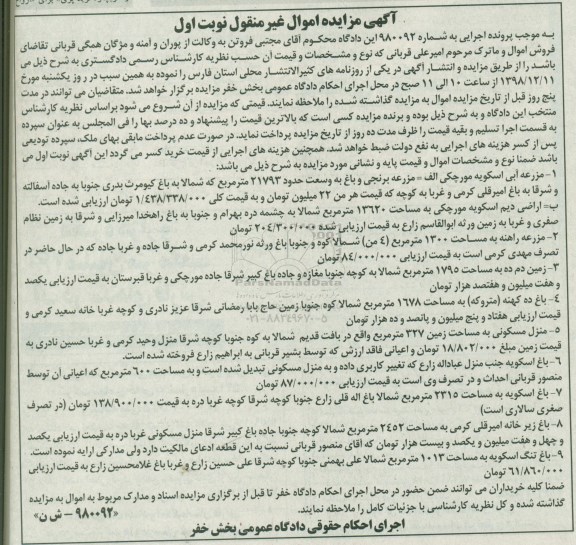 آگهی مزایده اموال غیر منقول نوبت اول
به موجب پرونده اجرایی به شماره ۹۸۰۰۹۲ این دادگاه محکوم آقای مجتبی فروتن به وکالت از پوران و آمنه و مژگان همگی قربانی تقاضای
فروش اموال و ماترک مرحوم امیرعلی قربانی که نوع و مشخصات و قیمت آن حسب نظریه کارشناس رسمی دادگستری به شرح ذیل می
باشد را از طریق مزایده و انتشار آگهی در یکی از روزنامه های کثیرالانتشار محلی استان فارس را نموده به همین سبب در روز یکشنبه مورخ
۱۳۹۸/۱۲/۱۱ از ساعت ۱۰ الی ۱۱ صبح در محل اجرای احکام دادگاه عمومی بخش خفر مزایده برگزار خواهد شد. متقاضیان می توانند در مدت
پنج روز قبل از تاریخ مزایده اموال به مزایده گذاشته شده را ملاحظه نمایند. قیمتی که مزایده از آن شروع می شود براساس نظریه کارشناس
منتخب این دادگاه و به شرح ذیل بوده و برنده مزایده کسی است که بالاترین قیمت را پیشنهاد و ده درصد بها را فی المجلس به عنوان سپرده
به قسمت اجرا تسلیم و بقیه قیمت را ظرف مدت ده روز از تاریخ مزایده پرداخت نماید. در صورت عدم پرداخت مابقی بهای ملک، سپرده تودیعی
پس از کسر هزینه های اجرایی به نفع دولت ضبط خواهد شد. همچنین هزینه های اجرایی از قیمت خرید کسر می گردد این آگهی نوبت اول می
باشد ضمنا نوع و مشخصات اموال و قیمت پایه و نشانی مورد مزایده به شرح ذیل می باشد:
۱- مزرعه آبی اسکویه مورچکی الف – مزرعه برنجی و باغ به وسعت حدود ۲۱۷۹۳ مترمربع که شمالا به باغ کیومرث بدری جنوبا به جاده اسفالته
و شرقا به باغ امیرقلی کرمی و غربا به کوچه که قیمت هر من ۲۲ میلیون تومان و به قیمت کلی ۱/۴۳۸/۳۳۸/۰۰۰ تومان ارزیابی شده است.
ب: اراضی دیم اسکویه مورچکی به مساحت ۱۳۶۲۰ مترمربع شمالا به چشمه دره بهرام و جنوبا به باغ راهخدا میرزایی و شرقا به زمین نظام
صفری و غربا به زمین ورثه ابوالقاسم زارع به قیمت ارزیابی شده ۲۰۴/۳۰۰/۰۰۰ تومان
۲- مزرعه راهنه به مساحت ۱۳۰۰ مترمربع (۴ من) شمالا کوه و جنوبا باغ ورثه نورمحمد کرمی و شرقا جاده و غربا جاده که در حال حاضر در
تصرف مهدی کرمی است به قیمت ارزیابی ۸۴/۰۰۰/۰۰۰ تومان
۳- زمین دم ده به مساحت ۱۷۹۵ مترمربع شمالا به کوچه جنوبا مغازه و جاده باغ کبیر شرقا جاده مورچکی و غربا قبرستان به قیمت ارزیابی یکصد
و هفت میلیون و هفتصد هزار تومان
۴- باغ ده کهنه (متروکه) به مساحت ۱۶۷۸ مترمربع شمالا کوه جنوبا زمین حاج بابا رمضانی شرقا عزیز نادری و کوچه غربا خانه سعید کرمی و
قیمت ارزیابی هفتاد و پنج میلیون و پانصد و ده هزار تومان
۵- منزل مسکونی به مساحت زمین ۳۲۷ مترمربع واقع در بافت قدیم شمالا به کوه جنوبا کوچه شرقا منزل وحید کرمی و غربا حسین نادری به
قیمت زمین مبلغ ۱۸/۸۰۲/۰۰۰ تومان و اعیانی فاقد ارزش که توسط بشیر قربانی به ابراهیم زارع فروخته شده است.
۶- باغ اسکویه جنب منزل عبداله زارع که تغییر کاربری داده و به منزل مسکونی تبدیل شده است و به مساحت ۶۰۰ مترمربع که اعیانی آن توسط
منصور قربانی احداث و در تصرف وی است به قیمت ارزیابی ۸۷/۰۰۰/۰۰۰ تومان
۷- باغ اسکویه به مساحت ۲۳۱۵ مترمربع شمالا باغ اله قلی زارع جنوبا کوچه شرقا کوچه غربا دره به قیمت ۱۳۸/۹۰۰/۰۰۰ تومان (در تصرف
صغری سالاری است)
۸- باغ زیر خانه امیرقلی کرمی به مساحت ۲۴۵۲ مترمربع شمالا کوچه جنوبا جاده باغ کبیر شرقا منزل مسکونی غربا دره به قیمت ارزیابی یکصد
و چهل و هفت میلیون و یکصد و بیست هزار تومان که اقای منصور قربانی نسبت به این قطعه ادعای مالکیت دارد ولی مدارکی ارایه نموده است.
۹- باغ تنگ اسکویه به مساحت ۱۰۱۳ مترمربع شمالا علی بهمنی جنوبا کوچه شرقا علی حسین زارع و غربا باغ غلامحسین زارع به قیمت ارزیابی
۶۱/۸۶۰/۰۰۰ تومان
ضمنا کلیه خریداران می توانند ضمن حضور در محل اجرای احکام دادگاه خفر تا قبل از برگزاری مزایده اسناد و مدارک مربوط به اموال به مزایده
گذاشته شده و کل نظریه کارشناسی با جزئیات کامل را ملاحظه نمایند. «۹۸۰۰۹۲ – ش ن»
اجرای احکام حقوقی دادگاه عمومی بخش خفر